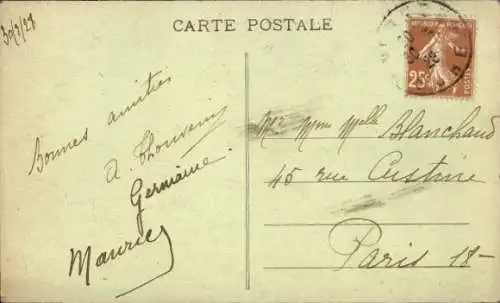 30/7/28
CARTE POSTALE
25c
POSTES
Bonnes amitiés
A. Thouvenin
Germaine
Maurice
Mr Mme Melle Blanchaud
45 rue Custine
Paris 18-